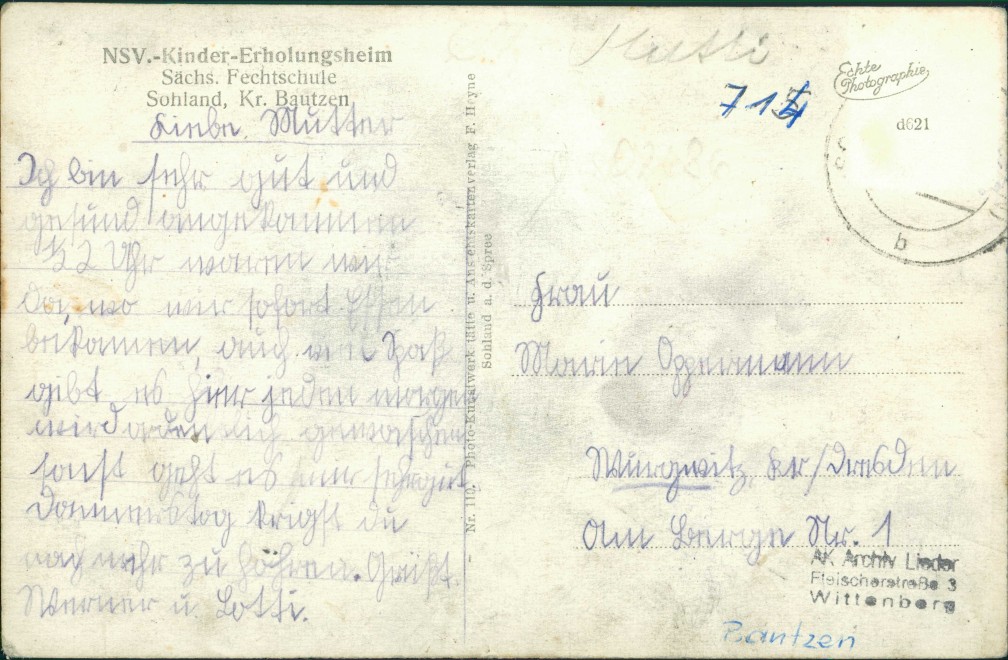 NSV.-Kinder-Erholungsheim
Sächs. Fechtschule
Sohland, Kr. Bautzen
Liebe Mutter
Ich bin sehr gut und
gesund angekommen
1/2 2 Uhr waren wir
da, wo wir sofort Essen
bekamen, auch viel Spaß
gibt es hier jeden morgen
wird ordendlich gewaschen
sonst geht es mir sehr gut
Donnerstog krigst du
noch mehr zu höhren. Grüßt
Werner u. Lotti.
Nr. 110. Photo-Kunstwerkstätte u. Ansichtskartenverlag F. Heyne
Sohland a. d. Spree
714
Echte
Photographie
d621
b
Frau
Marie Oppermann
Wurgwitz, Kr/Dresden
Am Berge Nr. 1
AK Archiv Lieder
Fleischerstraße 3
Wittenberg
Bautzen